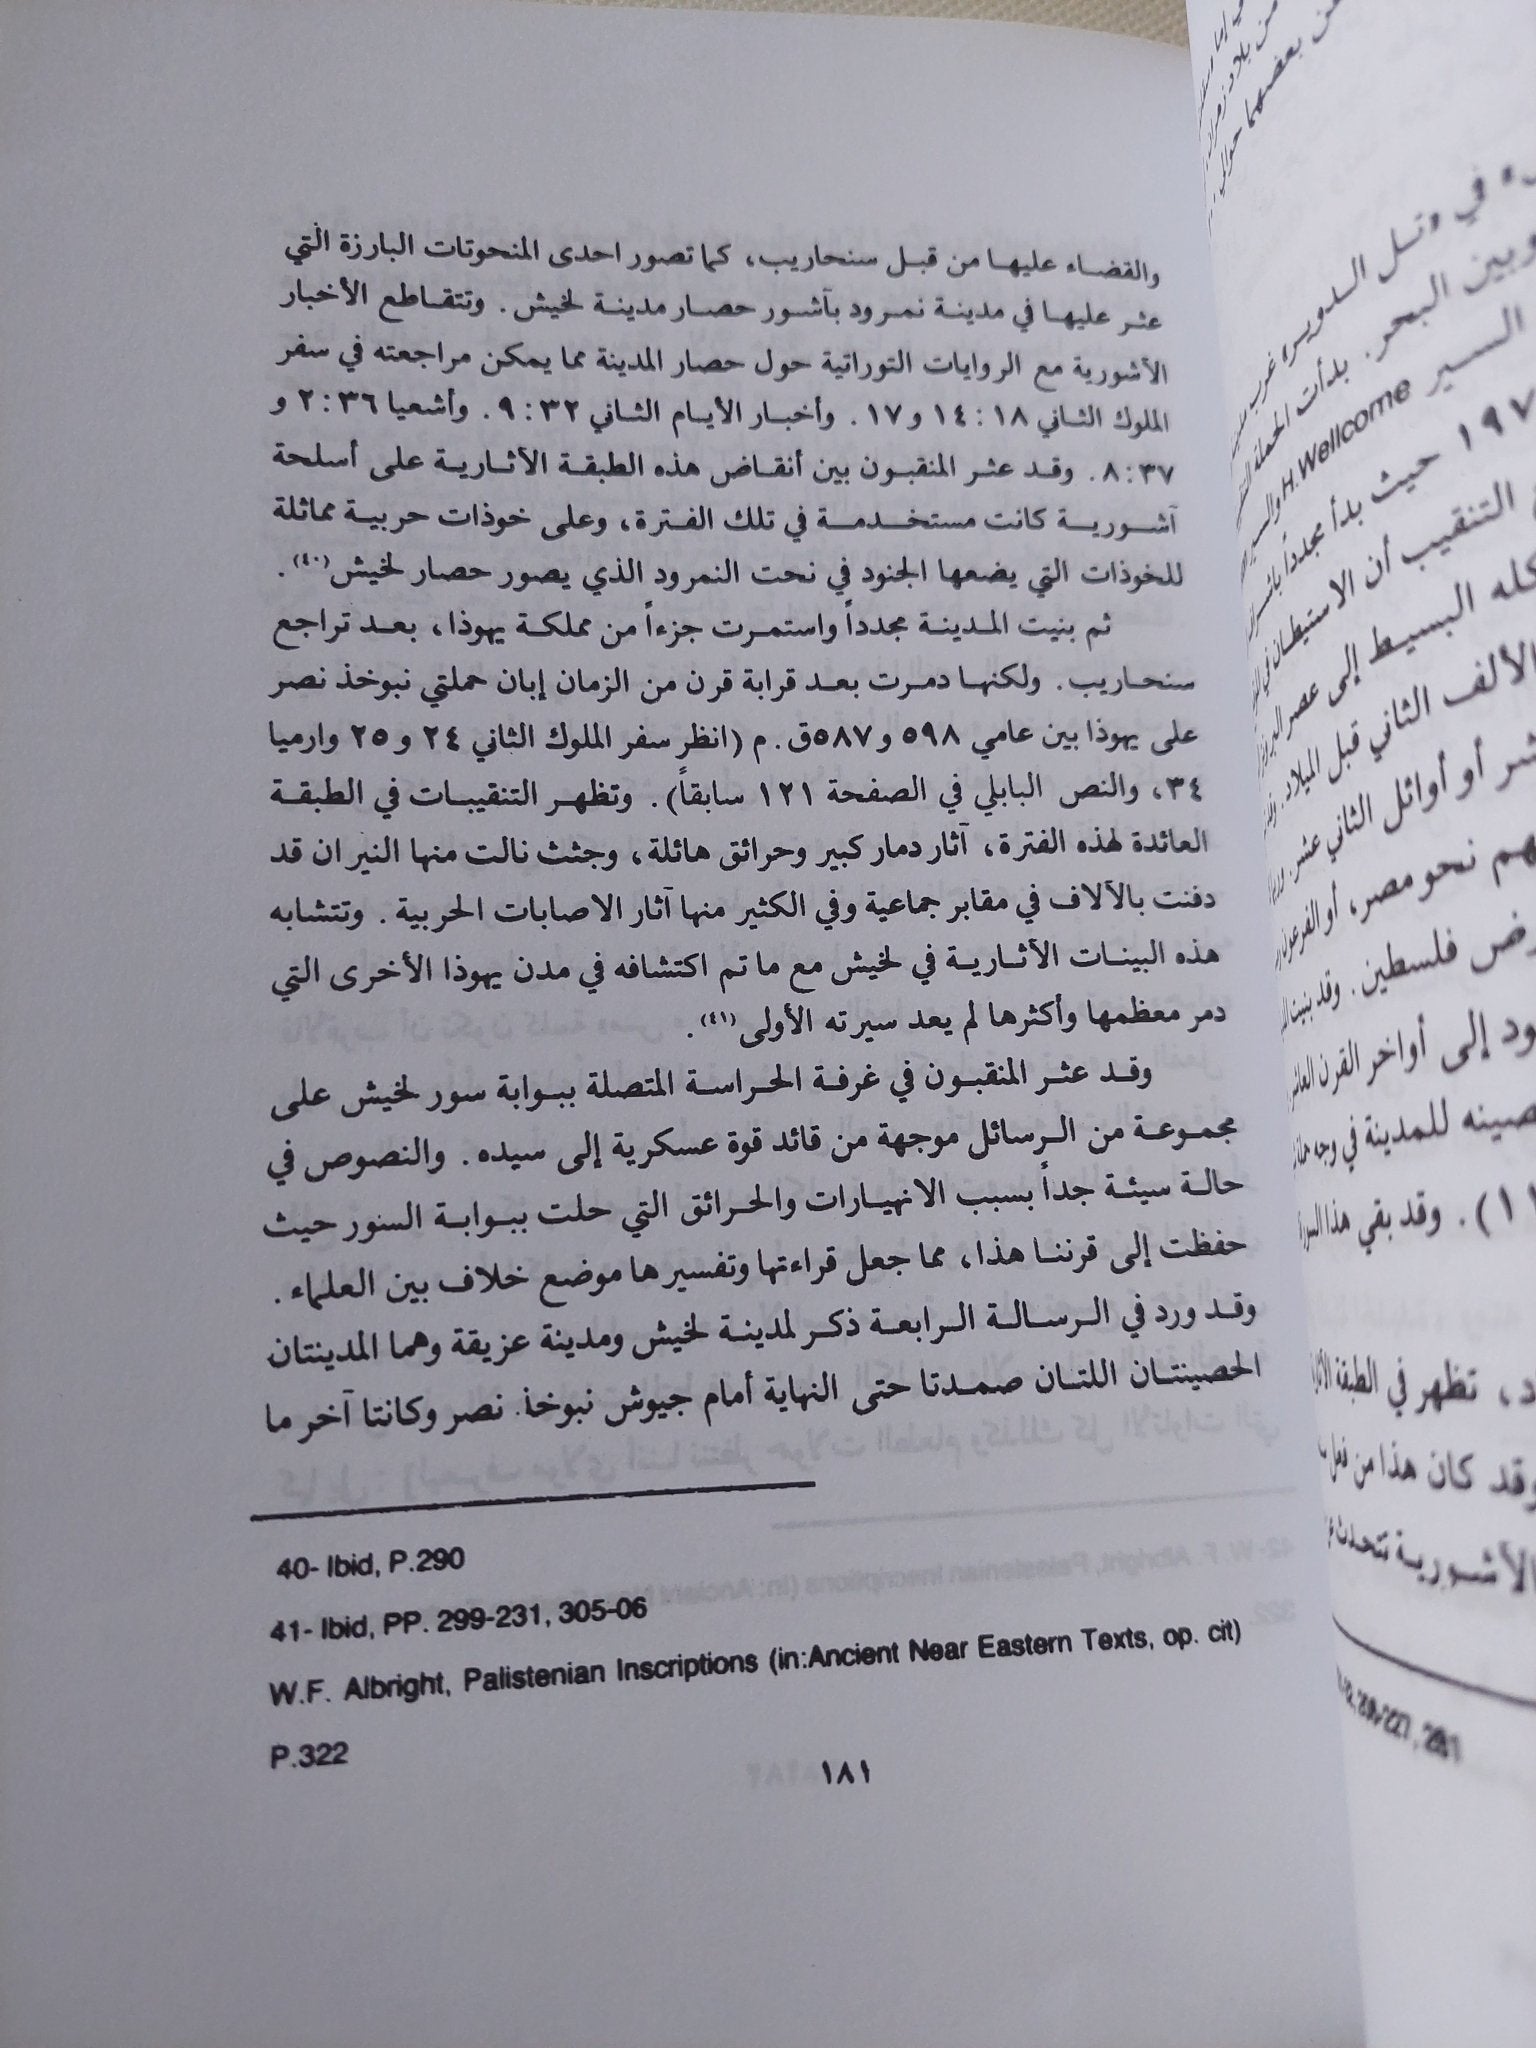 والقضاء عليها من قبل سنحاريب، كما تصور احدى المنحوتات البارزة التي
عثر عليها في مدينة نمرود بآشور حصار مدينة لخيش. وتتقاطع الأخبار
الأشورية مع الروايات التوراتية حول حصار المدينة مما يمكن مراجعته في سفر
الملوك الثاني ١٨ : ١٤ و ١٧. وأخبار الأيام الثاني ٣٢ : ٩. وأشعيا ٣٦ : ٢ و
٣٧ : ٨. وقد عثر المنقبون بين أنقاض هذه الطبقة الأثارية على أسلحة
آشورية كانت مستخدمة في تلك الفترة، وعلى خوذات حربية مماثلة
للخوذات التي يضعها الجنود في نحت النمرود الذي يصور حصار لخيش(٤٠).
ثم بنيت المدينة مجدداً واستمرت جزءاً من مملكة يهوذا، بعد تراجع
سنحاريب. ولكنها دمرت بعد قرابة قرن من الزمان إبان حملتي نبوخذ نصر
على يهوذا بين عامي ٥٩٨ و٥٨٧ق.م (انظر سفر الملوك الثاني ٢٤ و ٢٥ وارميا
٣٤، والنص البابلي في الصفحة ١٢١ سابقاً). وتظهر التنقيبات في الطبقة
العائدة لهذه الفترة، آثار دمار كبير وحرائق هائلة، وجثث نالت منها النيران قد
دفنت بالآلاف في مقابر جماعية وفي الكثير منها آثار الاصابات الحربية. وتتشابه
هذه البينات الأثارية في لخيش مع ما تم اكتشافه في مدن يهوذا الأخرى التي
دمر معظمها وأكثرها لم يعد سيرته الأولى(٤١).
وقد عثر المنقبون في غرفة الحراسة المتصلة ببوابة سور لخيش على
مجموعة من الرسائل موجهة من قائد قوة عسكرية إلى سيده. والنصوص في
حالة سيئة جداً بسبب الانهيارات والحرائق التي حلت ببوابة السور حيث
حفظت إلى قرننا هذا، مما جعل قراءتها وتفسيرها موضع خلاف بين العلماء.
وقد ورد في الرسالة الرابعة ذكر لمدينة لخيش ومدينة عزيقة وهما المدينتان
الحصينتان اللتان صمدتا حتى النهاية أمام جيوش نبوخذ نصر وكانتا آخر ما
40- Ibid, P.290
41- Ibid, PP. 299-231, 305-06
W.F. Albright, Palistenian Inscriptions (in:Ancient Near Eastern Texts, op. cit)
P.322
١٨١
عن بعضهما حوالي
في وتل الدوير، غرب
وبين البحر. بدأت الحملة
السير H.Wellcome والسير
حيث بدأ مجدداً
التنقيب أن الاستيطان في
البسيط إلى عصر
الألف الثاني قبل الميلاد.
أو أوائل الثاني عشر.
نحو مصر، أو الفرعون
فلسطين. وقد بنيت
إلى أواخر القرن
للمدينة في وجه
وقد بقي هذا السور
تظهر في الطبقة
وقد كان هذا من فعل
الأشورية تتحدث